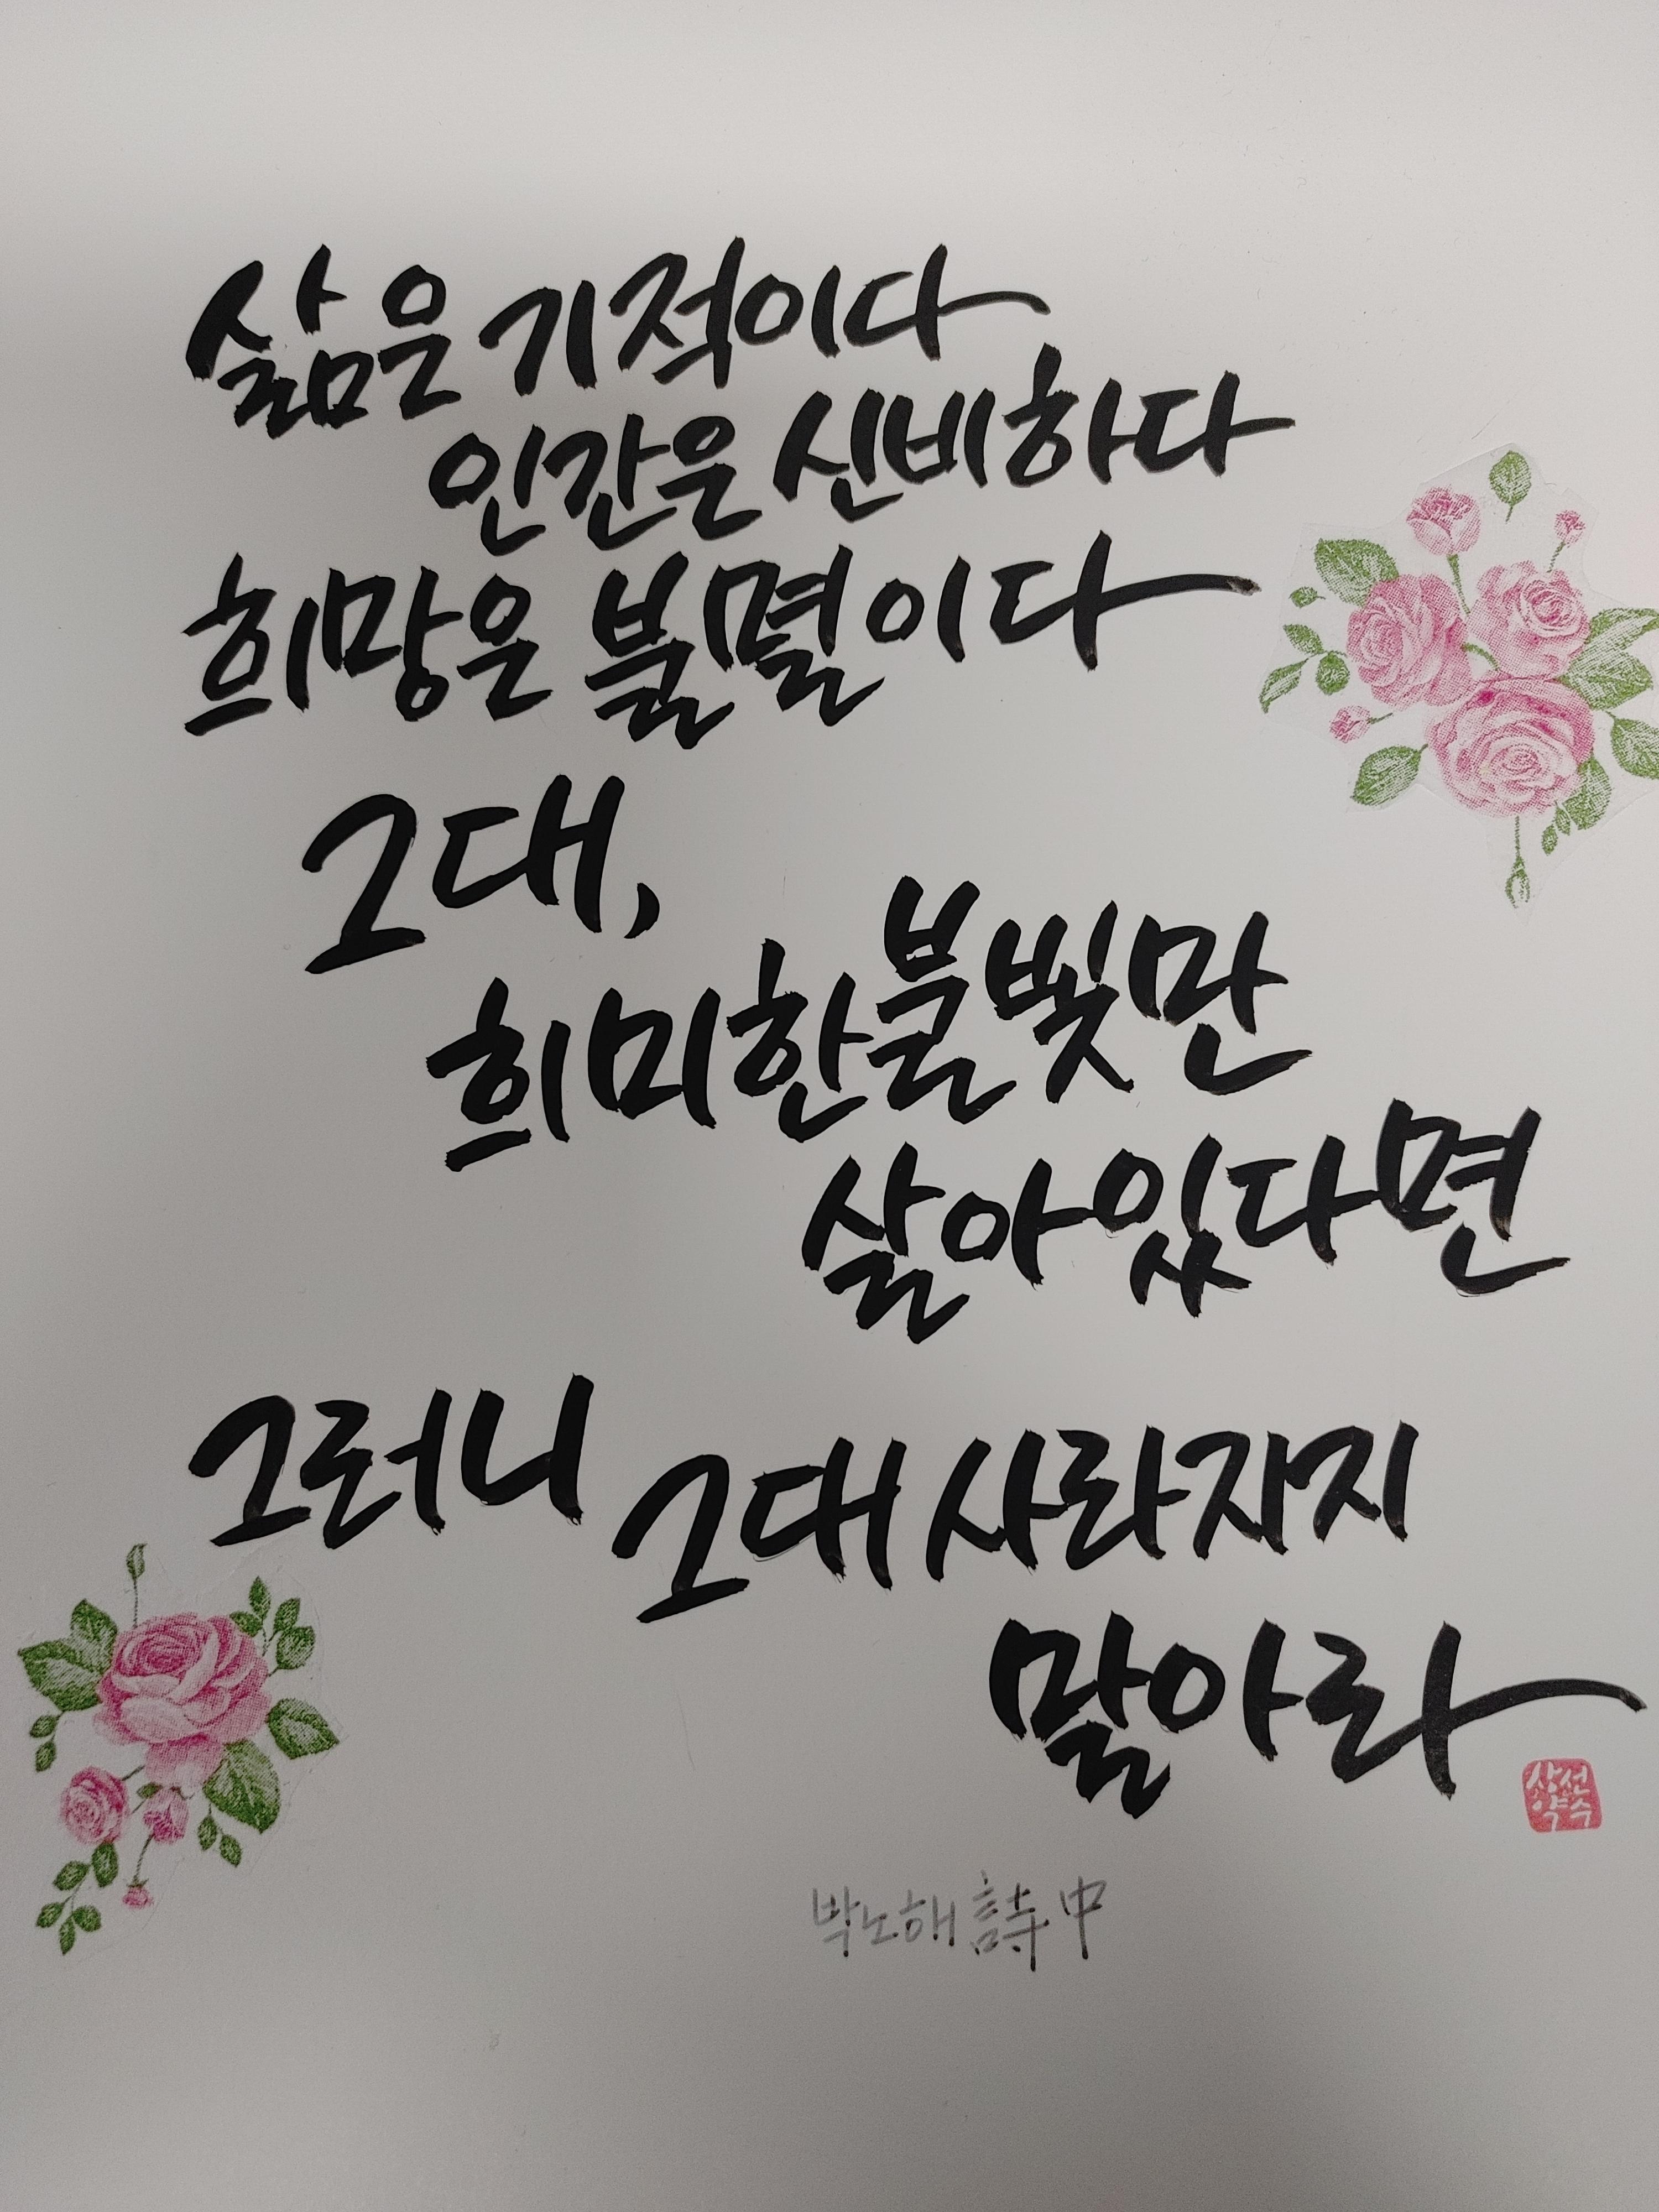 삶은 기적이다
인간은 신비하다
희망은 불멸이다
그대,
희미한 불빛만
살아 있다면
그러니 그대 사라지지
말아라
상선
약수
박노해 詩 中